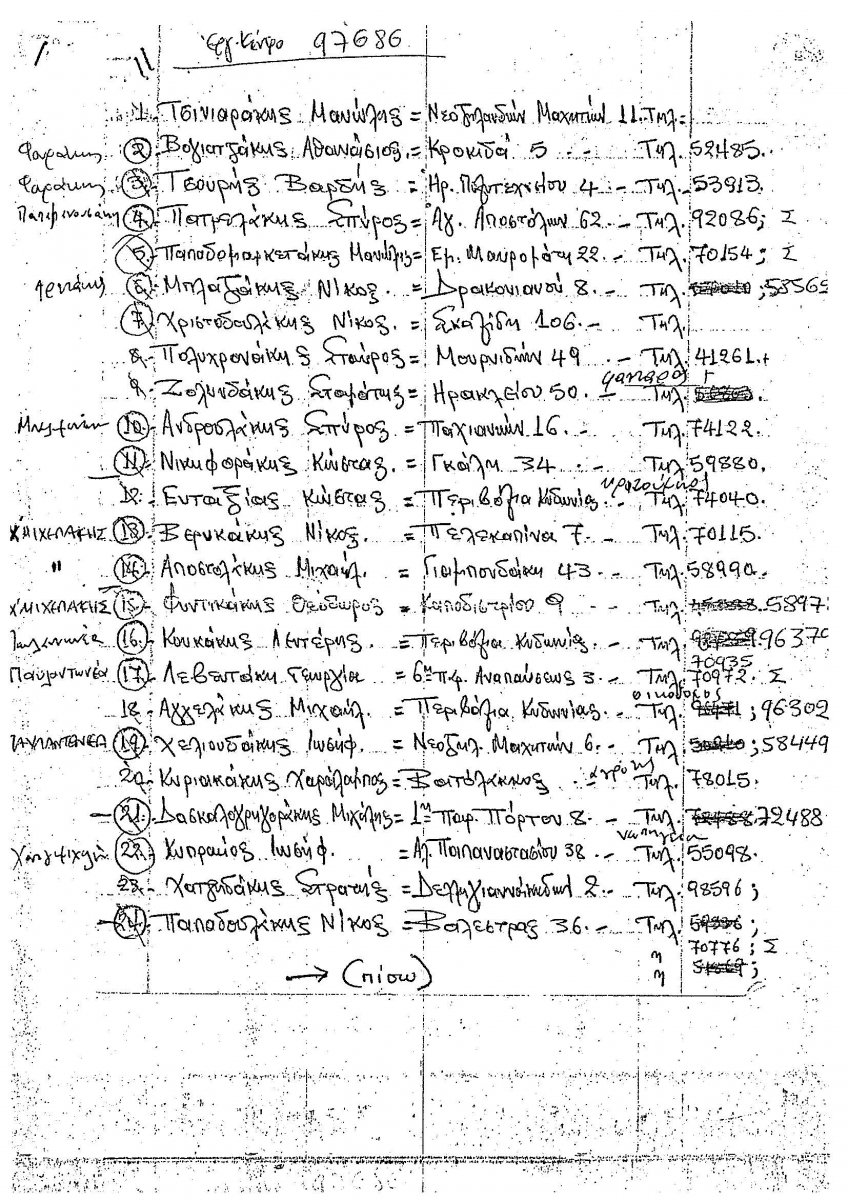 Εργ. Κέντρο 97686
1. Τσινιαράκης Μανώλης = Νεοζηλανδών Μαχητών 11. Τηλ.
Φαράκης 2. Βογιατζάκης Αθανάσιος. = Κροκιδά 5 .- Τηλ. 52485.
Φαράκης 3. Τσουρής Βαρδής = Ηρ. Πολυτεχνείου 4 .- Τηλ. 53913.
4. Πατρελάκης Σπύρος = Αγ. Αποστόλων 62 .- Τηλ. 92086; Σ
5. Παπαδομαρκετάκης Μανώλης = Εμ. Μαυρομάτη 22 .- Τηλ. 70154; Σ
6. Μπλαζάκης Νίκος. = Δρακονιανού 8 .- Τηλ. ; 53565
7. Χριστοδουλάκης Νίκος. = Σκαλίδη 106.- Τηλ.
8. Πολυχρονάκης Σταύρος = Μουρνιδών 49 .- Τηλ. 41261.+
φαναράς +
9. Ζολυνδάκης Σταμάτης = Ηρακλείου 50.- Τηλ.
10. Ανδρουλάκης Σπύρος = Παχιανών 16 .- Τηλ. 74122.
11. Νικηφοράκης Κώστας. = Γκάλη 34 .- Τηλ. 59880.
12. Ενταξίας Κώστας = Περιβόλια Κυδωνίας .- Τηλ. 74040.
Χ'ΜΙΧΕΛΑΚΗΣ 13. Βερυκάκης Νίκος. = Πελεκαπίνα 7 .- Τηλ. 70115.
" 14. Αποστολάκης Μιχαήλ. = Γιαμπουδάκη 43 .- Τηλ. 58990.
Χ'ΜΙΧΕΛΑΚΗΣ 15. Φυντικάκης Θεόδωρος = Καποδιστρίου 9 .- Τηλ. 5897
16. Κουκάκης Λευτέρης. = Περιβόλια Κυδωνίας .- Τηλ. 9637
70935
17. Λεβεντάκη Γεωργία = 6η παρ. Αναπαύσεως 3 .- Τηλ. 70972. Σ
οικοδόμος
18. Αγγελάκης Μιχαήλ. = Περιβόλια Κυδωνίας .- Τηλ. ; 96302
19. Χελιουδάκης Ιωσήφ. = Νεοζηλ. Μαχητών 6 .- Τηλ. ; 58449
20. Κυριακάκης Χαράλαμπος = Βατόλακκος .- αγρότης Τηλ. 78015.
21. Δασκαλογρηγοράκης Μιχάλης = 1η Παρ. Πόρτου 8 .- Τηλ. 72488
22. Κυπραίος Ιωσήφ. = Αλ. Παπαναστασίου 38 .- Τηλ. 55098.
23. Χατζιδάκης Στρατής = Δεληγιαννάκηδων 2 .- Τηλ. 98596;
24. Παπαδουλάκης Νίκος = Βαλέστρας 36.- Τηλ. ;
" 70776; Σ
" ;
→ (πίσω)